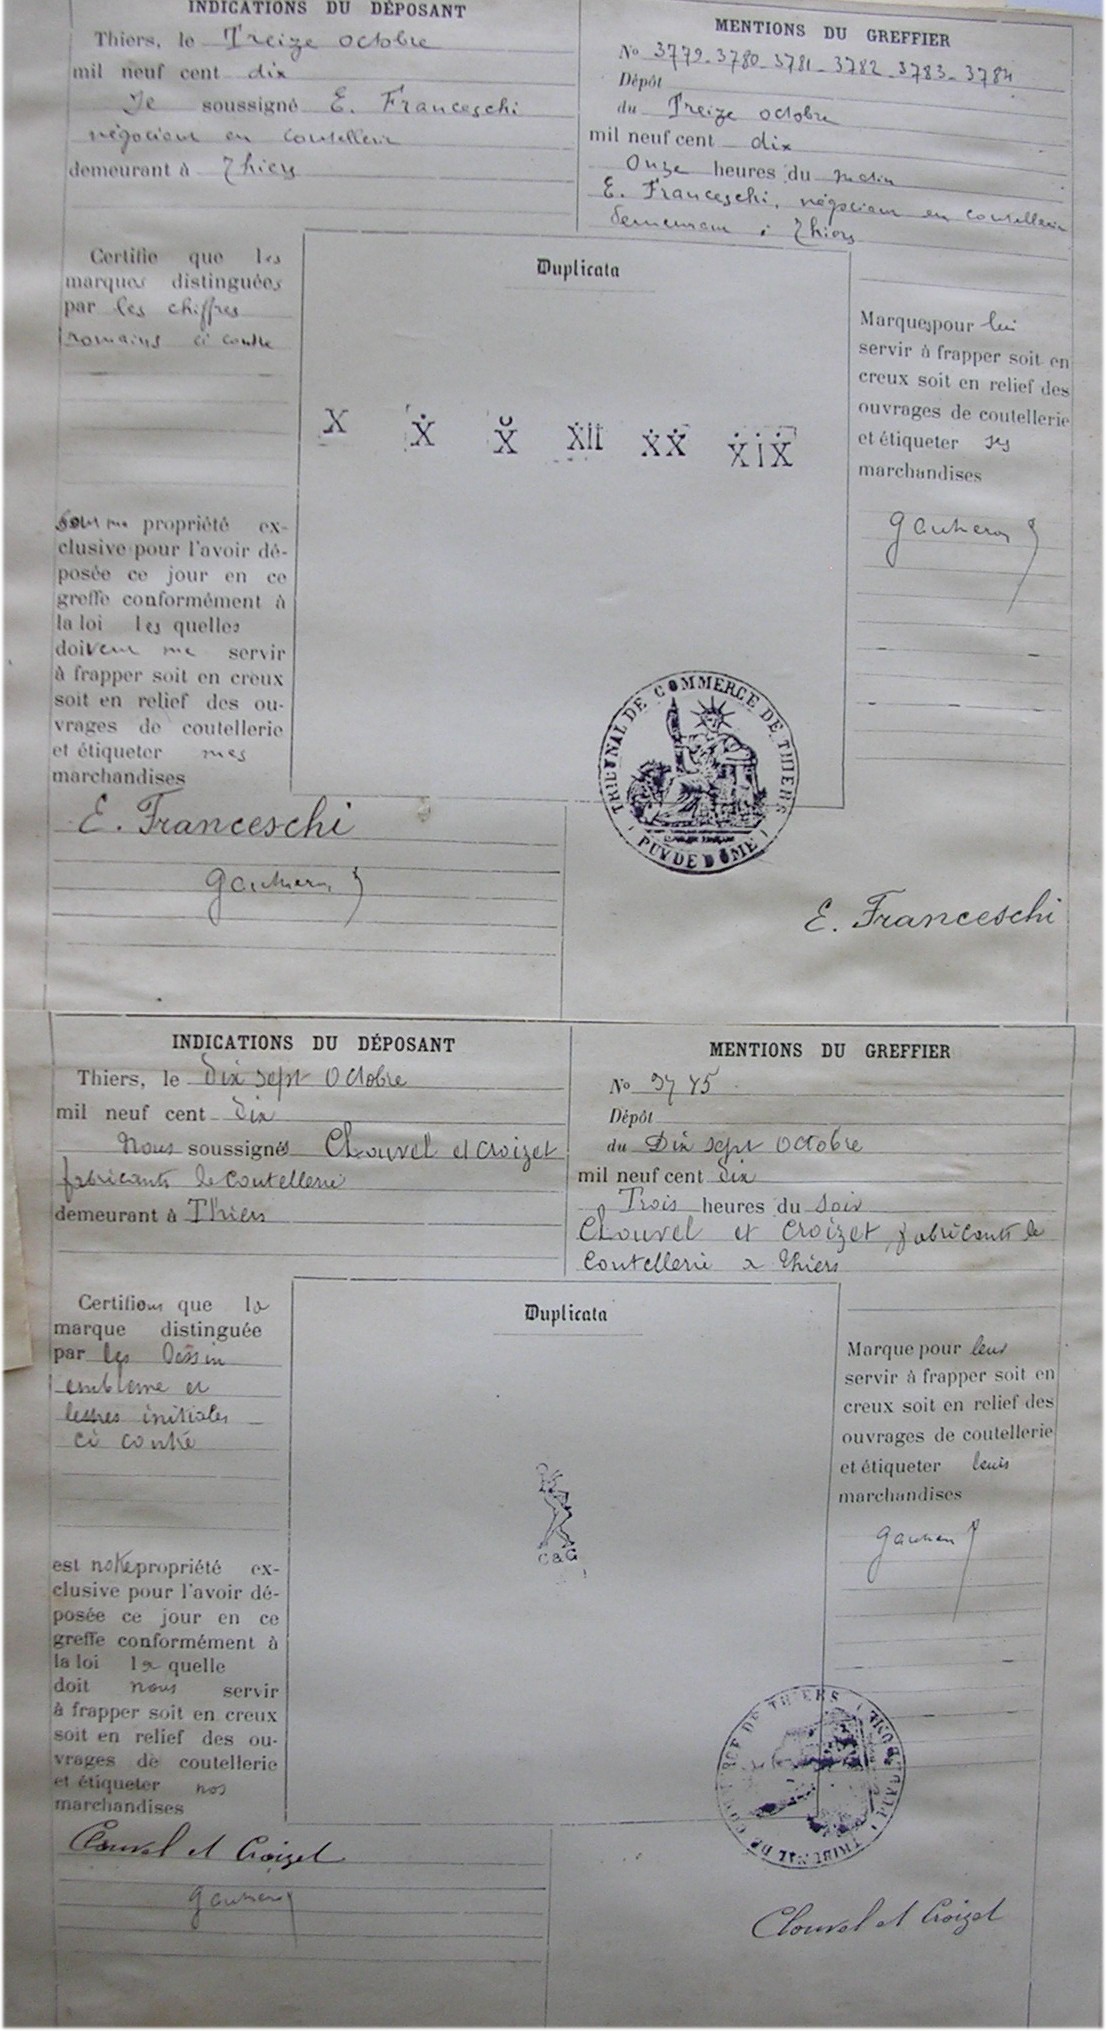 INDICATIONS DU DÉPOSANT
Thiers, le Treize octobre
mil neuf cent dix
Je soussigné E. Franceschi
négociant en coutellerie
demeurant à Thiers
MENTIONS DU GREFFIER
No 3779_3780_3781_3782_3783_3784
Dépôt
du Treize octobre
mil neuf cent dix
Onze heures du matin
E. Franceschi, négociant en coutellerie
demeurant à Thiers
Certifie que les
marques distinguées
par les chiffres
romains ci contre
sont ma propriété ex-
clusive pour l'avoir dé-
posée ce jour en ce
greffe conformément à
la loi les quelles
doivent me servir
à frapper soit en creux
soit en relief des ou-
vrages de coutellerie
et étiqueter mes
marchandises
E. Franceschi
Duplicata
X Ẋ X̆ ẊII ẊẊ ẊİẊ
TRIBUNAL DE COMMERCE DE THIERS
PUY DE DÔME
Marques pour lui
servir à frapper soit en
creux soit en relief des
ouvrages de coutellerie
et étiqueter ses
marchandises
E. Franceschi
INDICATIONS DU DÉPOSANT
Thiers, le Dix sept Octobre
mil neuf cent Dix
Nous soussignés Chouvel et Croizet
fabricants de Coutellerie
demeurant à Thiers
MENTIONS DU GREFFIER
No
Dépôt
du Dix sept Octobre
mil neuf cent Dix
Trois heures du Soir
Chouvel et Croizet, fabricants de
Coutellerie a Thiers
Certifions que la
marque distinguée
par les Dessin
embleme et
lettres initiales
ci contre
est notre propriété ex-
clusive pour l'avoir dé-
posée ce jour en ce
greffe conformément à
la loi la quelle
doit nous servir
à frapper soit en creux
soit en relief des ou-
vrages de coutellerie
et étiqueter nos
marchandises
Chouvel et Croizet
Duplicata
C&C
TRIBUNAL DE COMMERCE DE THIERS
PUY DE DÔME
Marque pour leur
servir à frapper soit en
creux soit en relief des
ouvrages de coutellerie
et étiqueter leurs
marchandises
Chouvel et Croizet